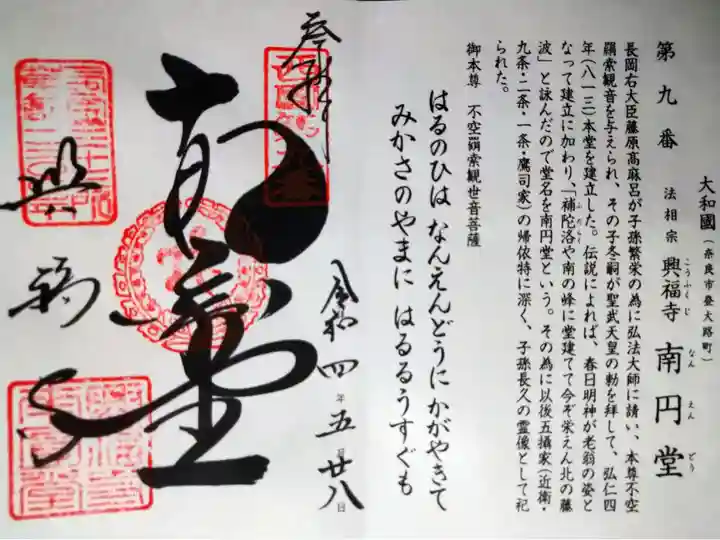 第九番
大和國(奈良市登大路町)
法相宗 興福寺 南円堂
こうふくじ なんえんどう
長岡右大臣藤原高麻呂が子孫繁栄の為に弘法大師に請い、本尊不空
羂索観音を与えられ、その子冬嗣が聖武天皇の勅を拜して、弘仁四
年(八一三)本堂を建立した。伝説によれば、春日明神が老翁の姿と
なって建立に加わり、「補陀洛や南の峰に堂建てて今ぞ栄えん北の藤
ふだらく
波」と詠んだので堂名を南円堂という。その為に以後五攝家(近衛・
九条・二条・一条・鷹司家)の帰依特に深く、子孫長久の霊像として祀
られた。
御本尊 不空羂索観世音菩薩
はるのひは なんえんどうに かがやきて
みかさのやまに はるるうすぐも
奉拝
令和四年五月廿八日
南円堂
興福寺